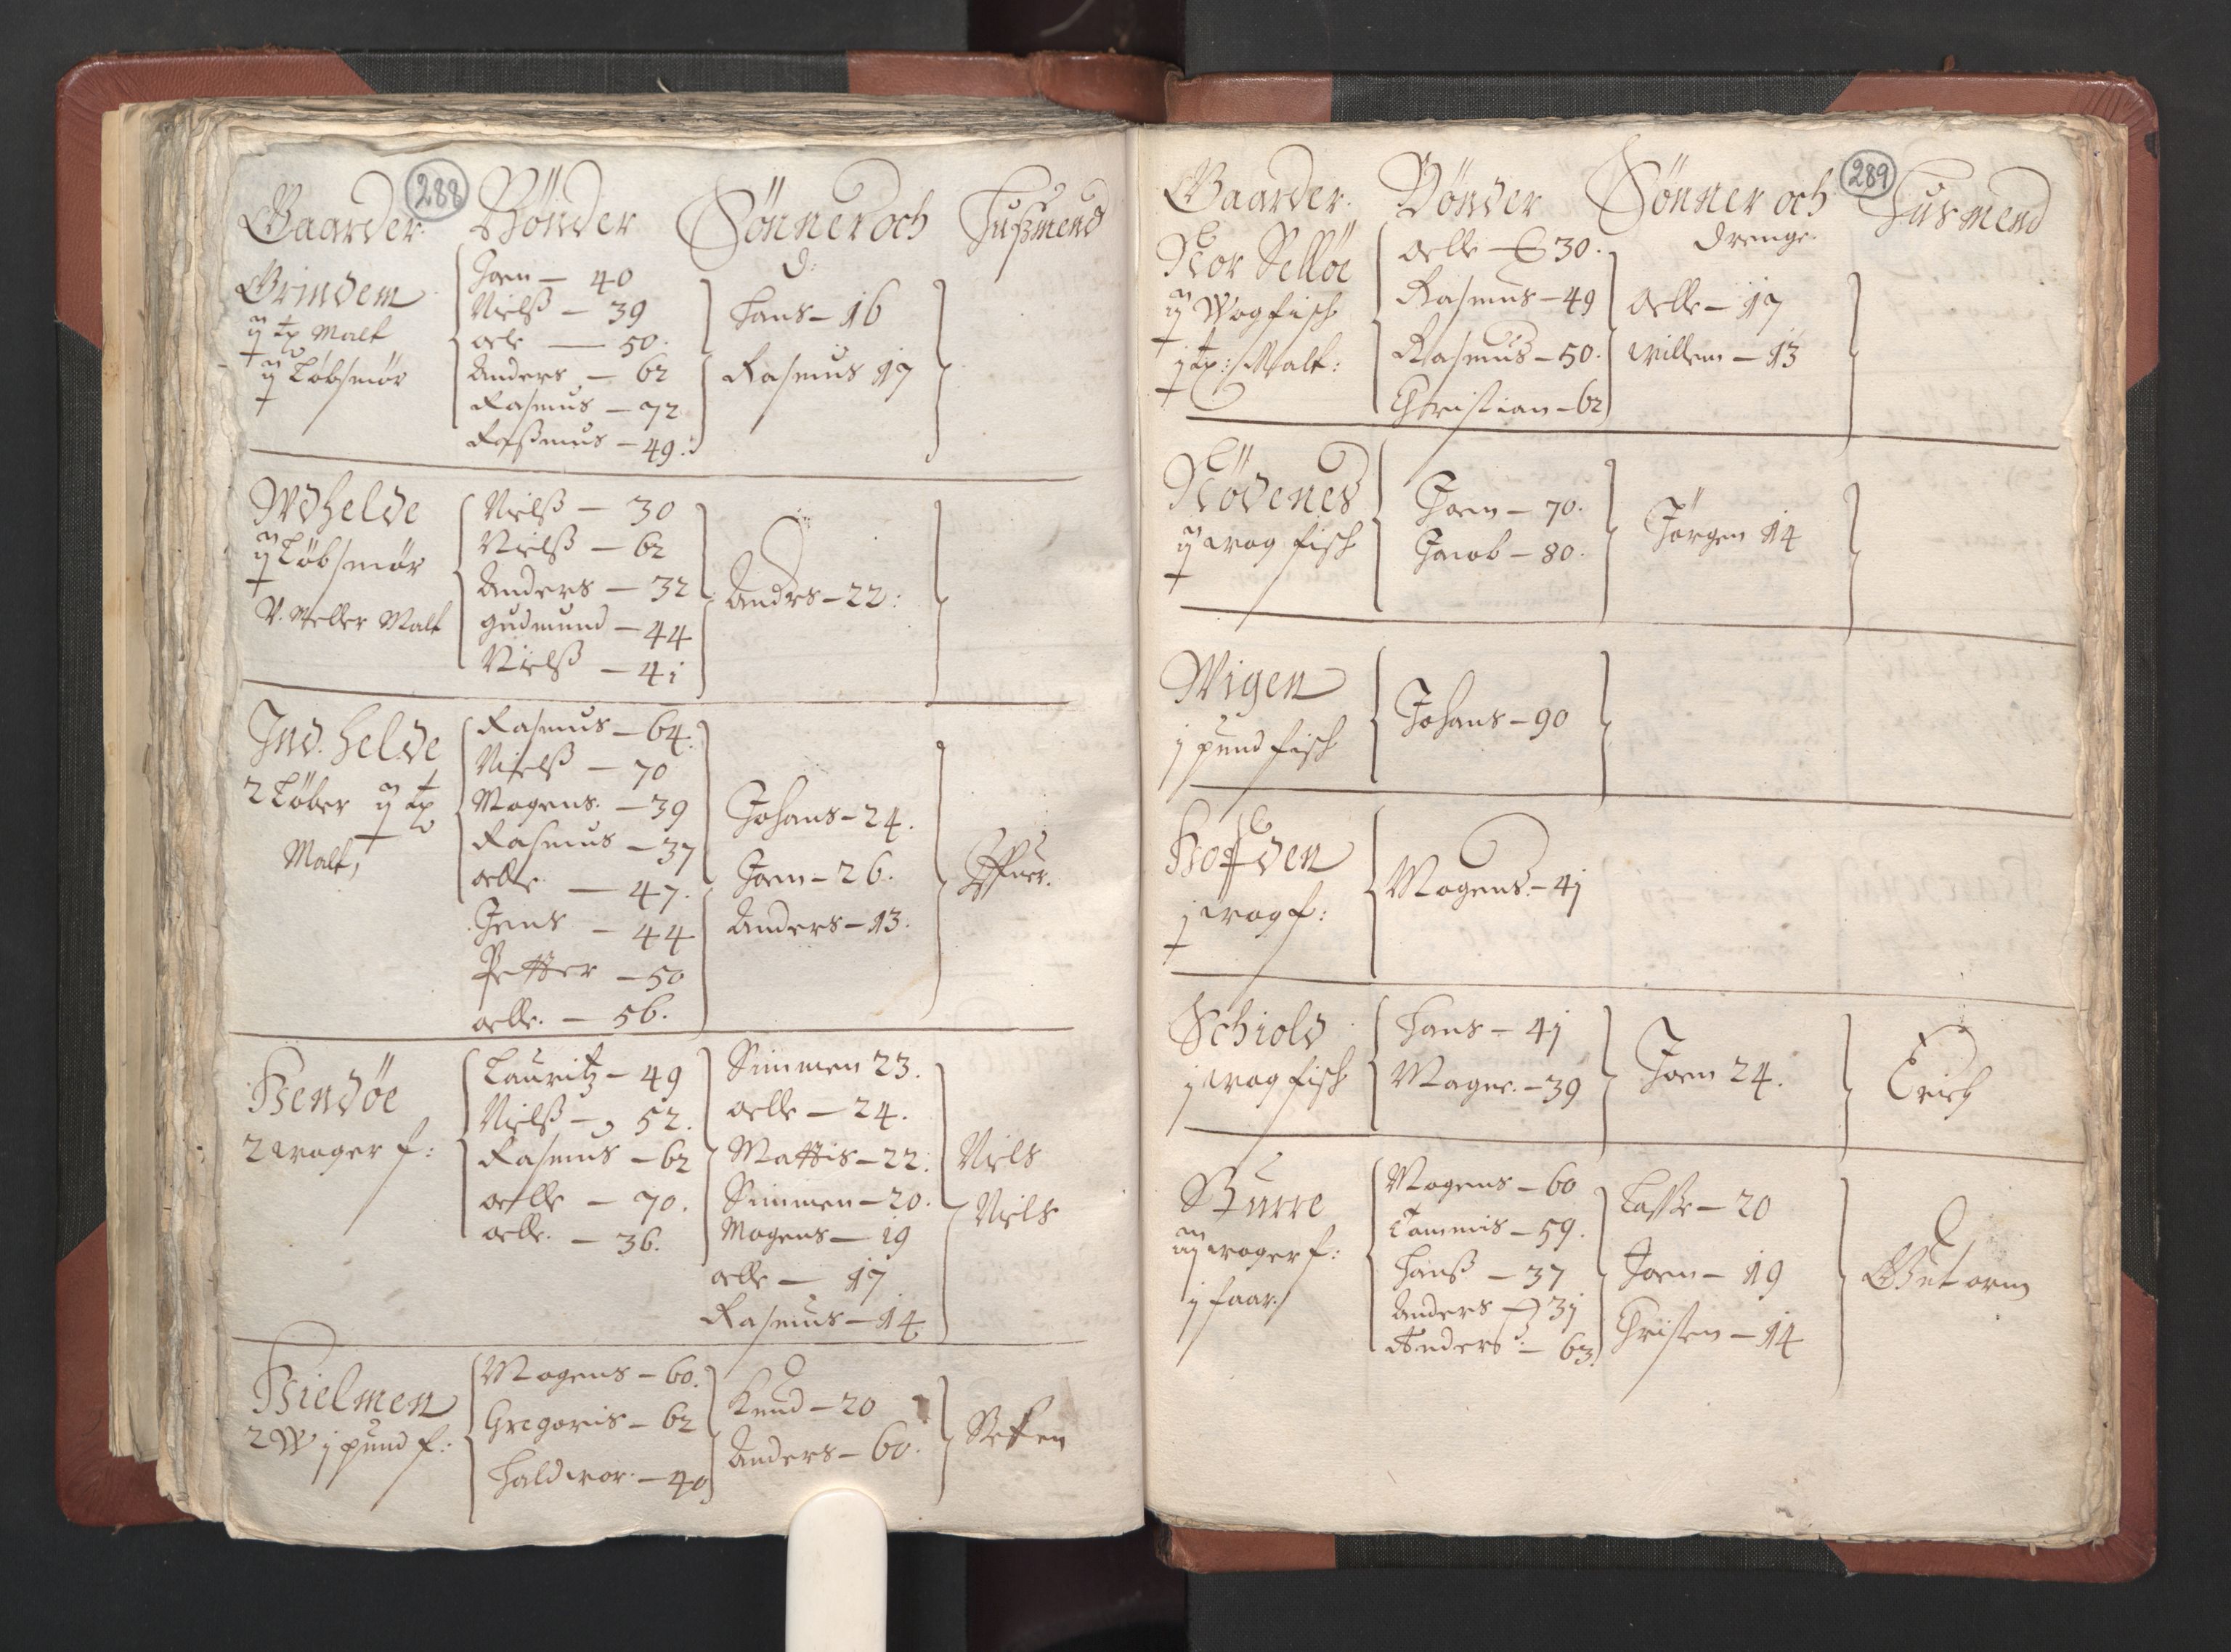 288
Gaarder. Bönder Sönner och Husmend
D:
Grindem
ij tp Malt
ij Löbsmör
Joen — 40
Nielß — 39
oele — 50.
Anders — 62
Rasmus — 72
Raßmus — 49.
Hans — 16
Rasmus 17
Wdhelde
ij Löbsmör
V. Meller Malt
Nielß — 30
Nielß — 62
Anders — 32
gudmund — 44
Nielß — 41
Andrs — 22:
Ind. helde
2 Löber ij tp
Malt,
Rasmus — 64.
Nielß — 70
Mogens. — 39
Rasmus — 37
oelle — 47.
Jens — 44
Petter — 50
oelle. — 56.
Johans — 24.
Joen — 26.
Anders — 13.
Iffuer.
Hendöe
2 woger f:
Lauritz — 49
Nielß — 52.
Rasmus — 62
oelle — 70.
oelle. — 36.
Simmen 23.
oelle — 24.
Mattis — 22.
Simmen — 20.
Mogens — 19
oelle — 17
Rasmus — 14
Niels
Niels
Hielmen
2 W j pund f:
Mogens — 60.
Gregoris — 62
Haldwor. — 40
Knud — 20
Anders — 60.
Steffen
289
Gaarder. Bönder Sönner och Husmend
Drenge.
Nor Sellöe
ij Wog fisch
j tp: Malt:
oelle — 30.
Rasmus — 49
Rasmus — 50.
Christian — 62
oelle — 17
Willem — 13
Nödenes
ij wog fisch
Joen — 70.
Jacob — 80.
Jörgen 14
Wigen
j pund fisch
Johans — 90
Hofden
j wog f:
Mogens. — 41
Schiold
j wog fisch
Hans — 41
Magne. — 39
Joen 24.
Erich
Burre
iij woger f:
j faar.
Mogens — 60
Tommis — 59.
Hanß — 37
Anders — 31
Anders — 63.
Lasse — 20
Joen — 19
Christen — 14
Gutorm